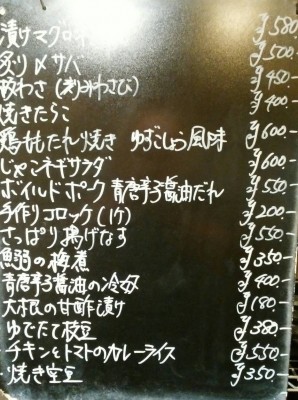 漬けマグロ ¥580.-
炙り〆サバ ¥500.-
板わさ (刻みわさび) ¥450-
焼きたらこ ¥400.-
鶏ももたれ焼き ゆずこしょう風味 ¥600-
じゃこネギサラダ ¥600-
ボイルドポーク 青唐辛子醤油だれ ¥550-
手作りコロッケ(1ケ) ¥200.-
さっぱり揚げなす ¥550.-
魚弱の梅煮 ¥350.-
青唐辛子醤油の冷奴 ¥400-
大根の甘酢漬け ¥180.-
ゆでたて枝豆 ¥380.-
・チキンとトマトのカレーライス ¥550.-
・焼き空豆 ¥350.-